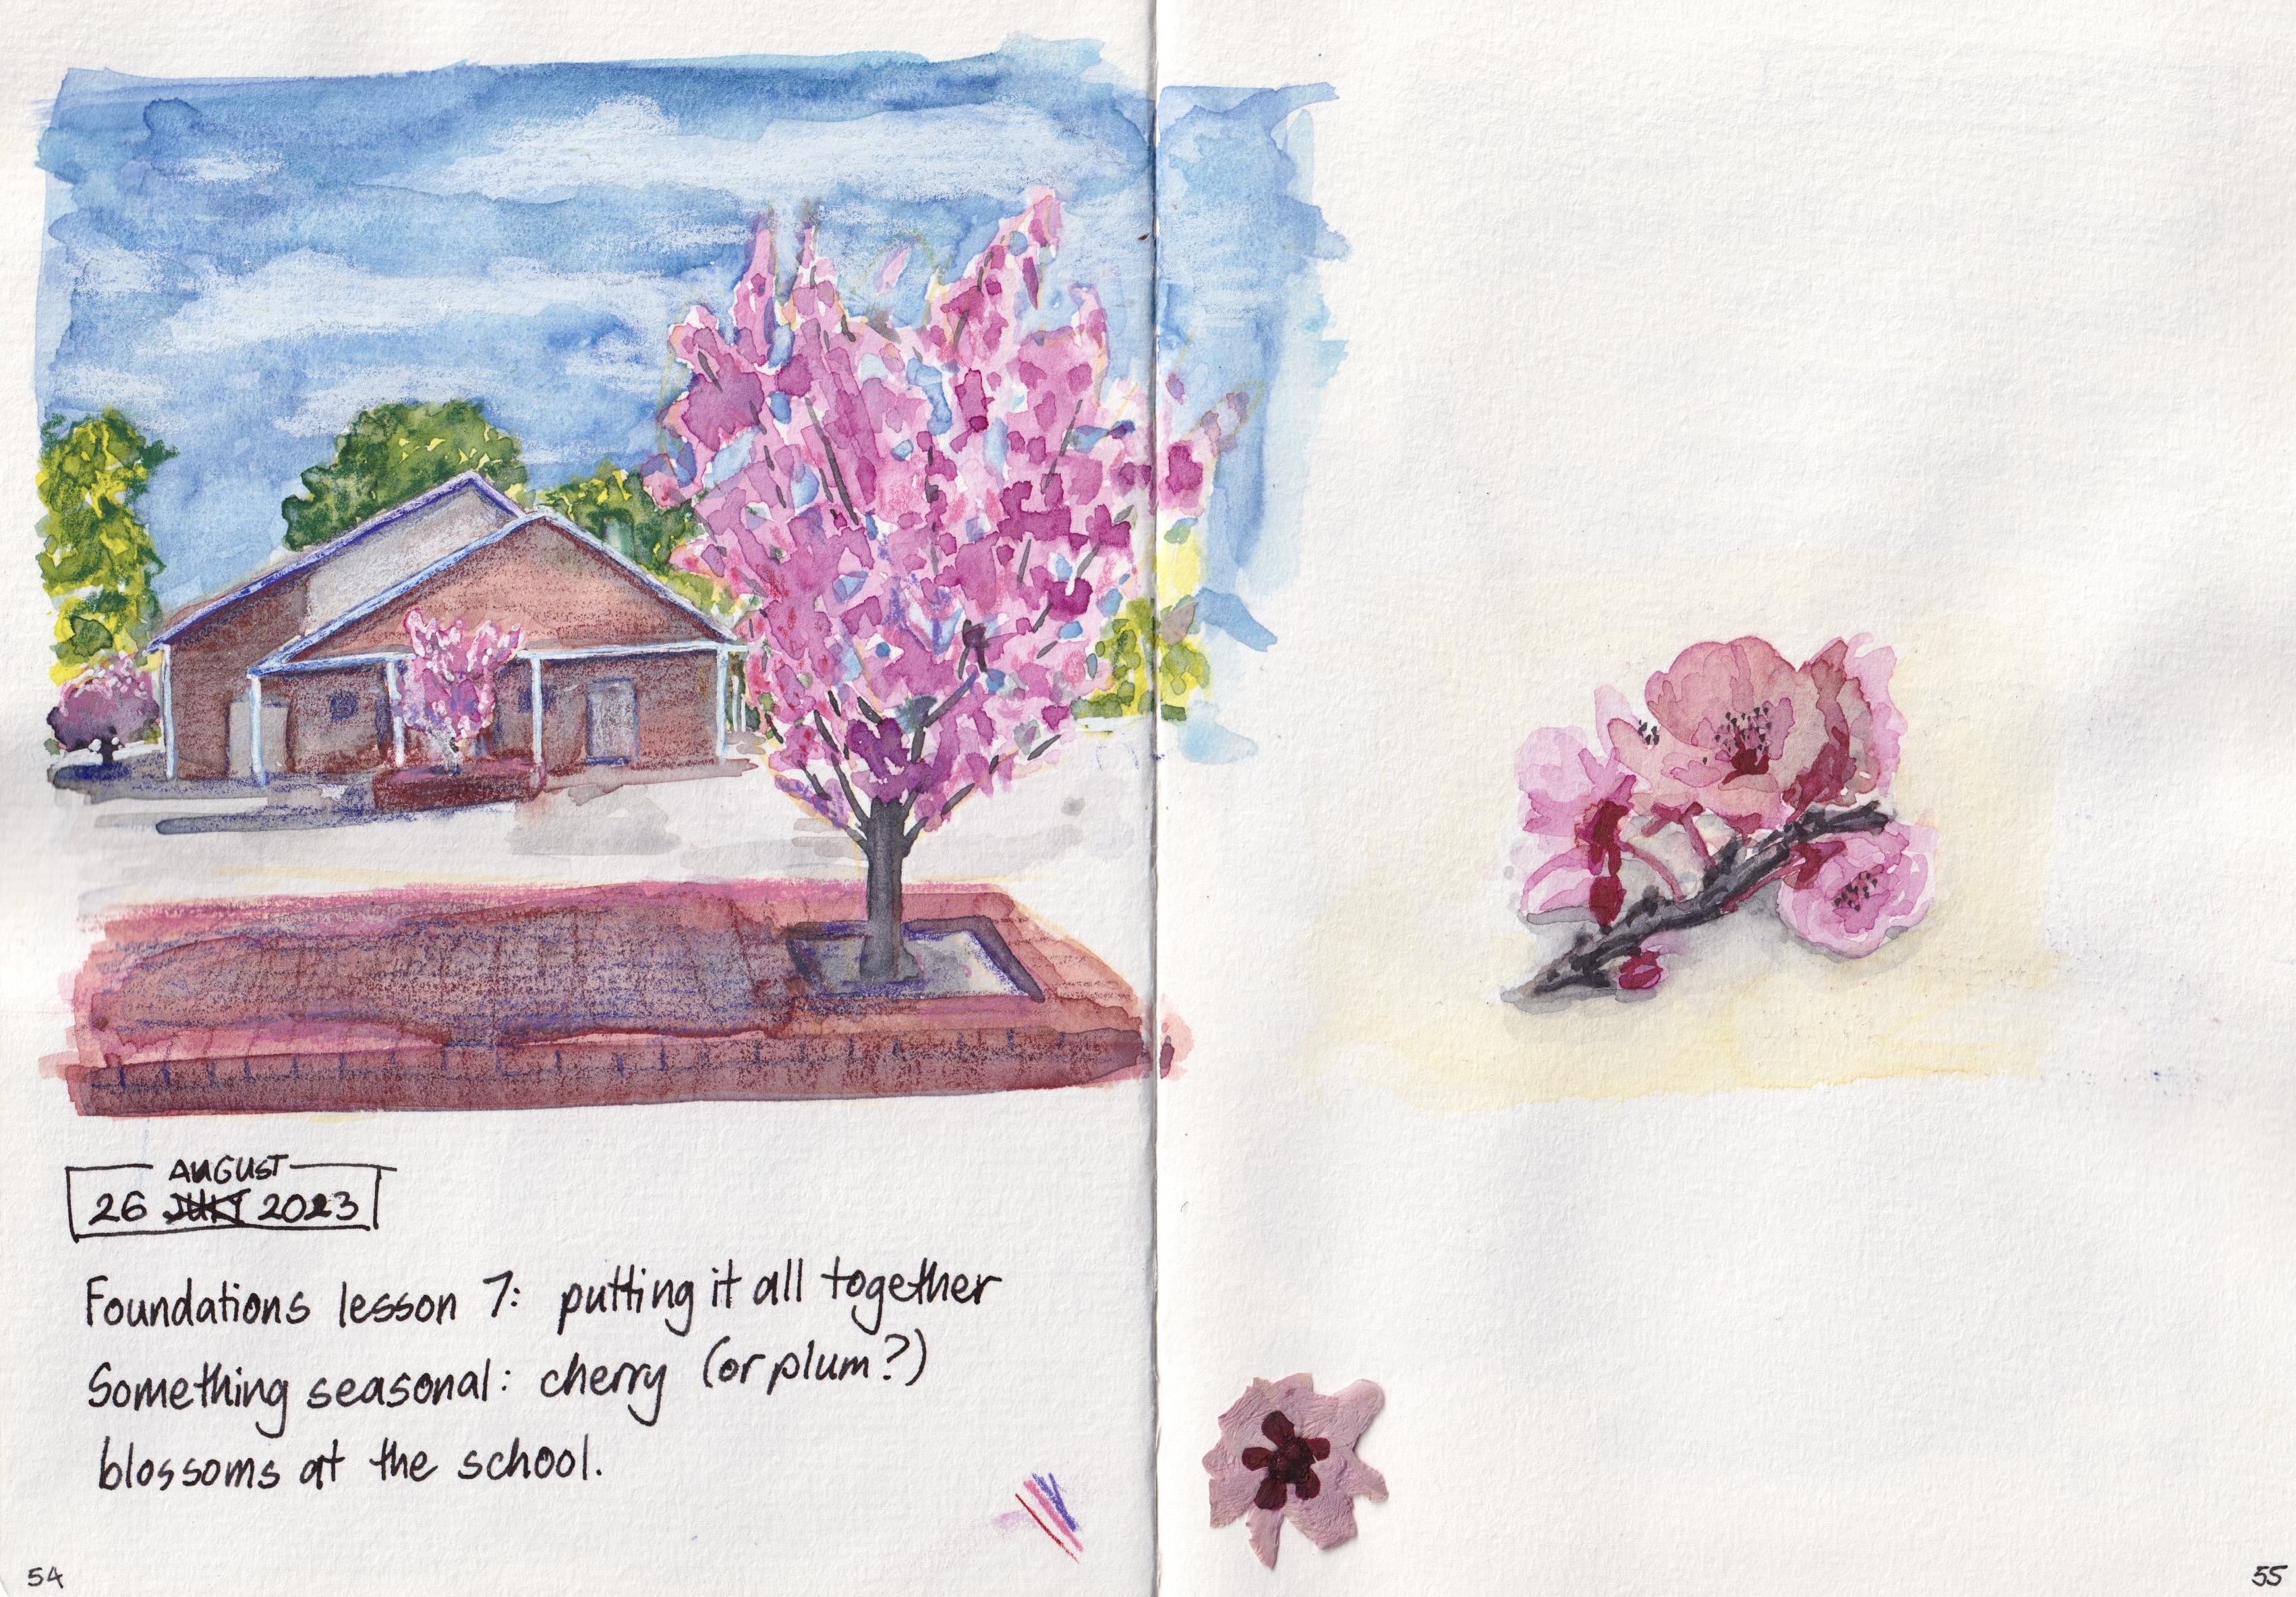 AUGUST
26 JULY 2023
Foundations lesson 7: putting it all together
Something seasonal: cherry (or plum?)
blossoms at the school.
54
55